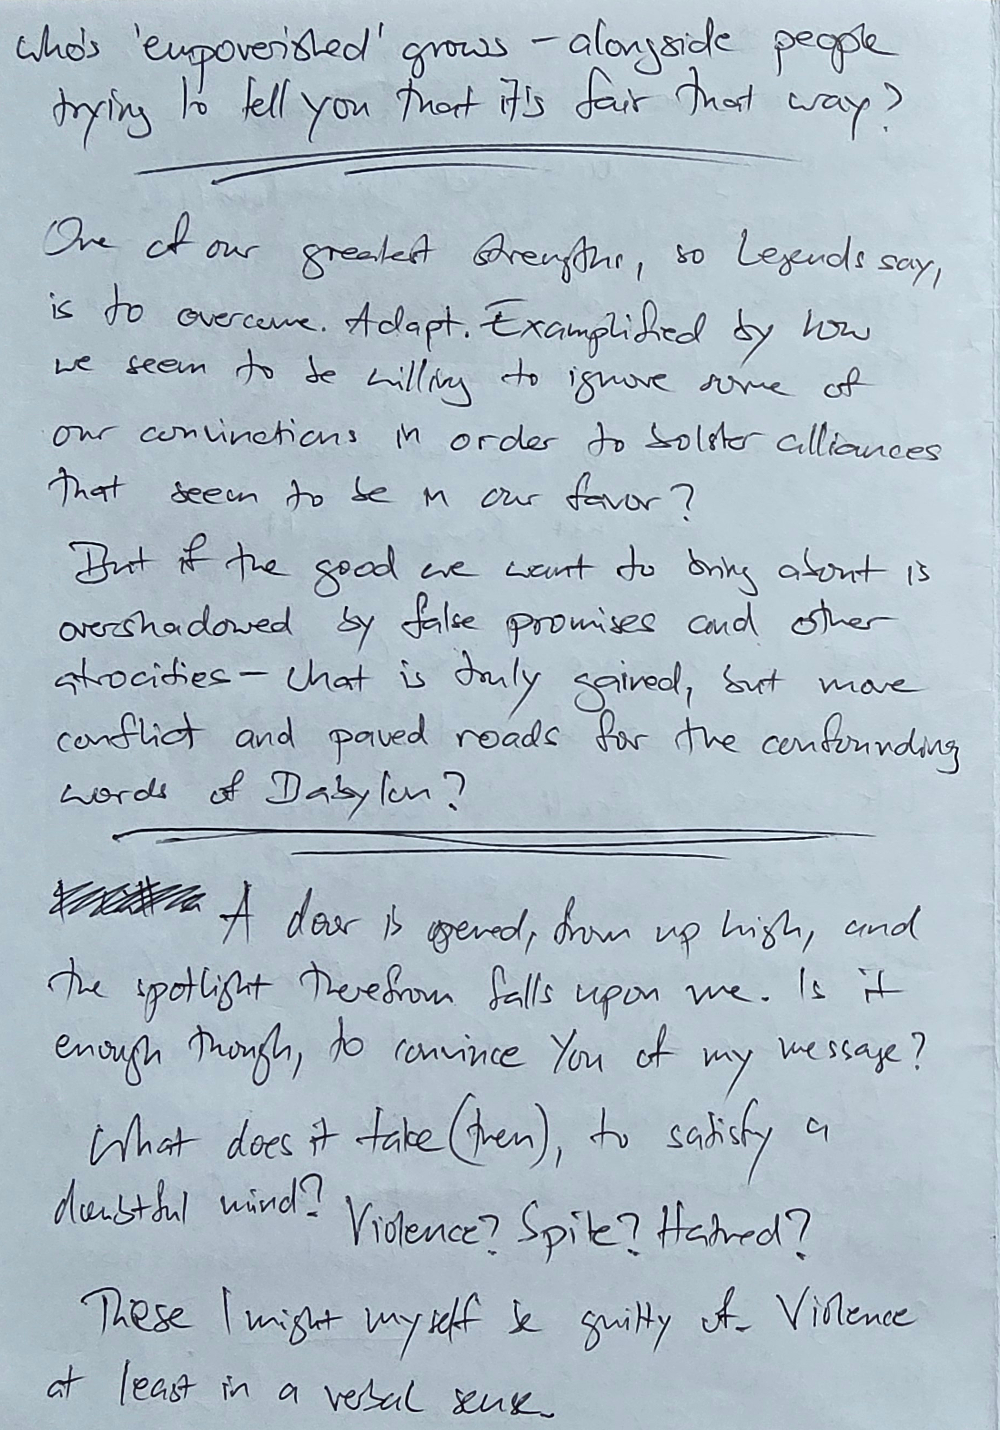 who's 'empoverished' grows – alongside people
trying to tell you that it's fair that way?
One of our greatest strengths, so Legends say,
is to overcome. Adapt. Examplified by how
we seem to be willing to ignore some of
our convinctions in order to bolster alliances
that seem to be in our favor?
But if the good we want to bring about is
overshadowed by false promises and other
atrocities – what is truly gained, but more
conflict and paved roads for the confounding
words of Babylon?
A door is opened, from up high, and
the spotlight therefrom falls upon me. Is it
enough though, to convince You of my message?
What does it take (then), to satisfy a
doubtful mind? Violence? Spite? Hatred?
These I might myself be guilty of. Violence
at least in a verbal sense.